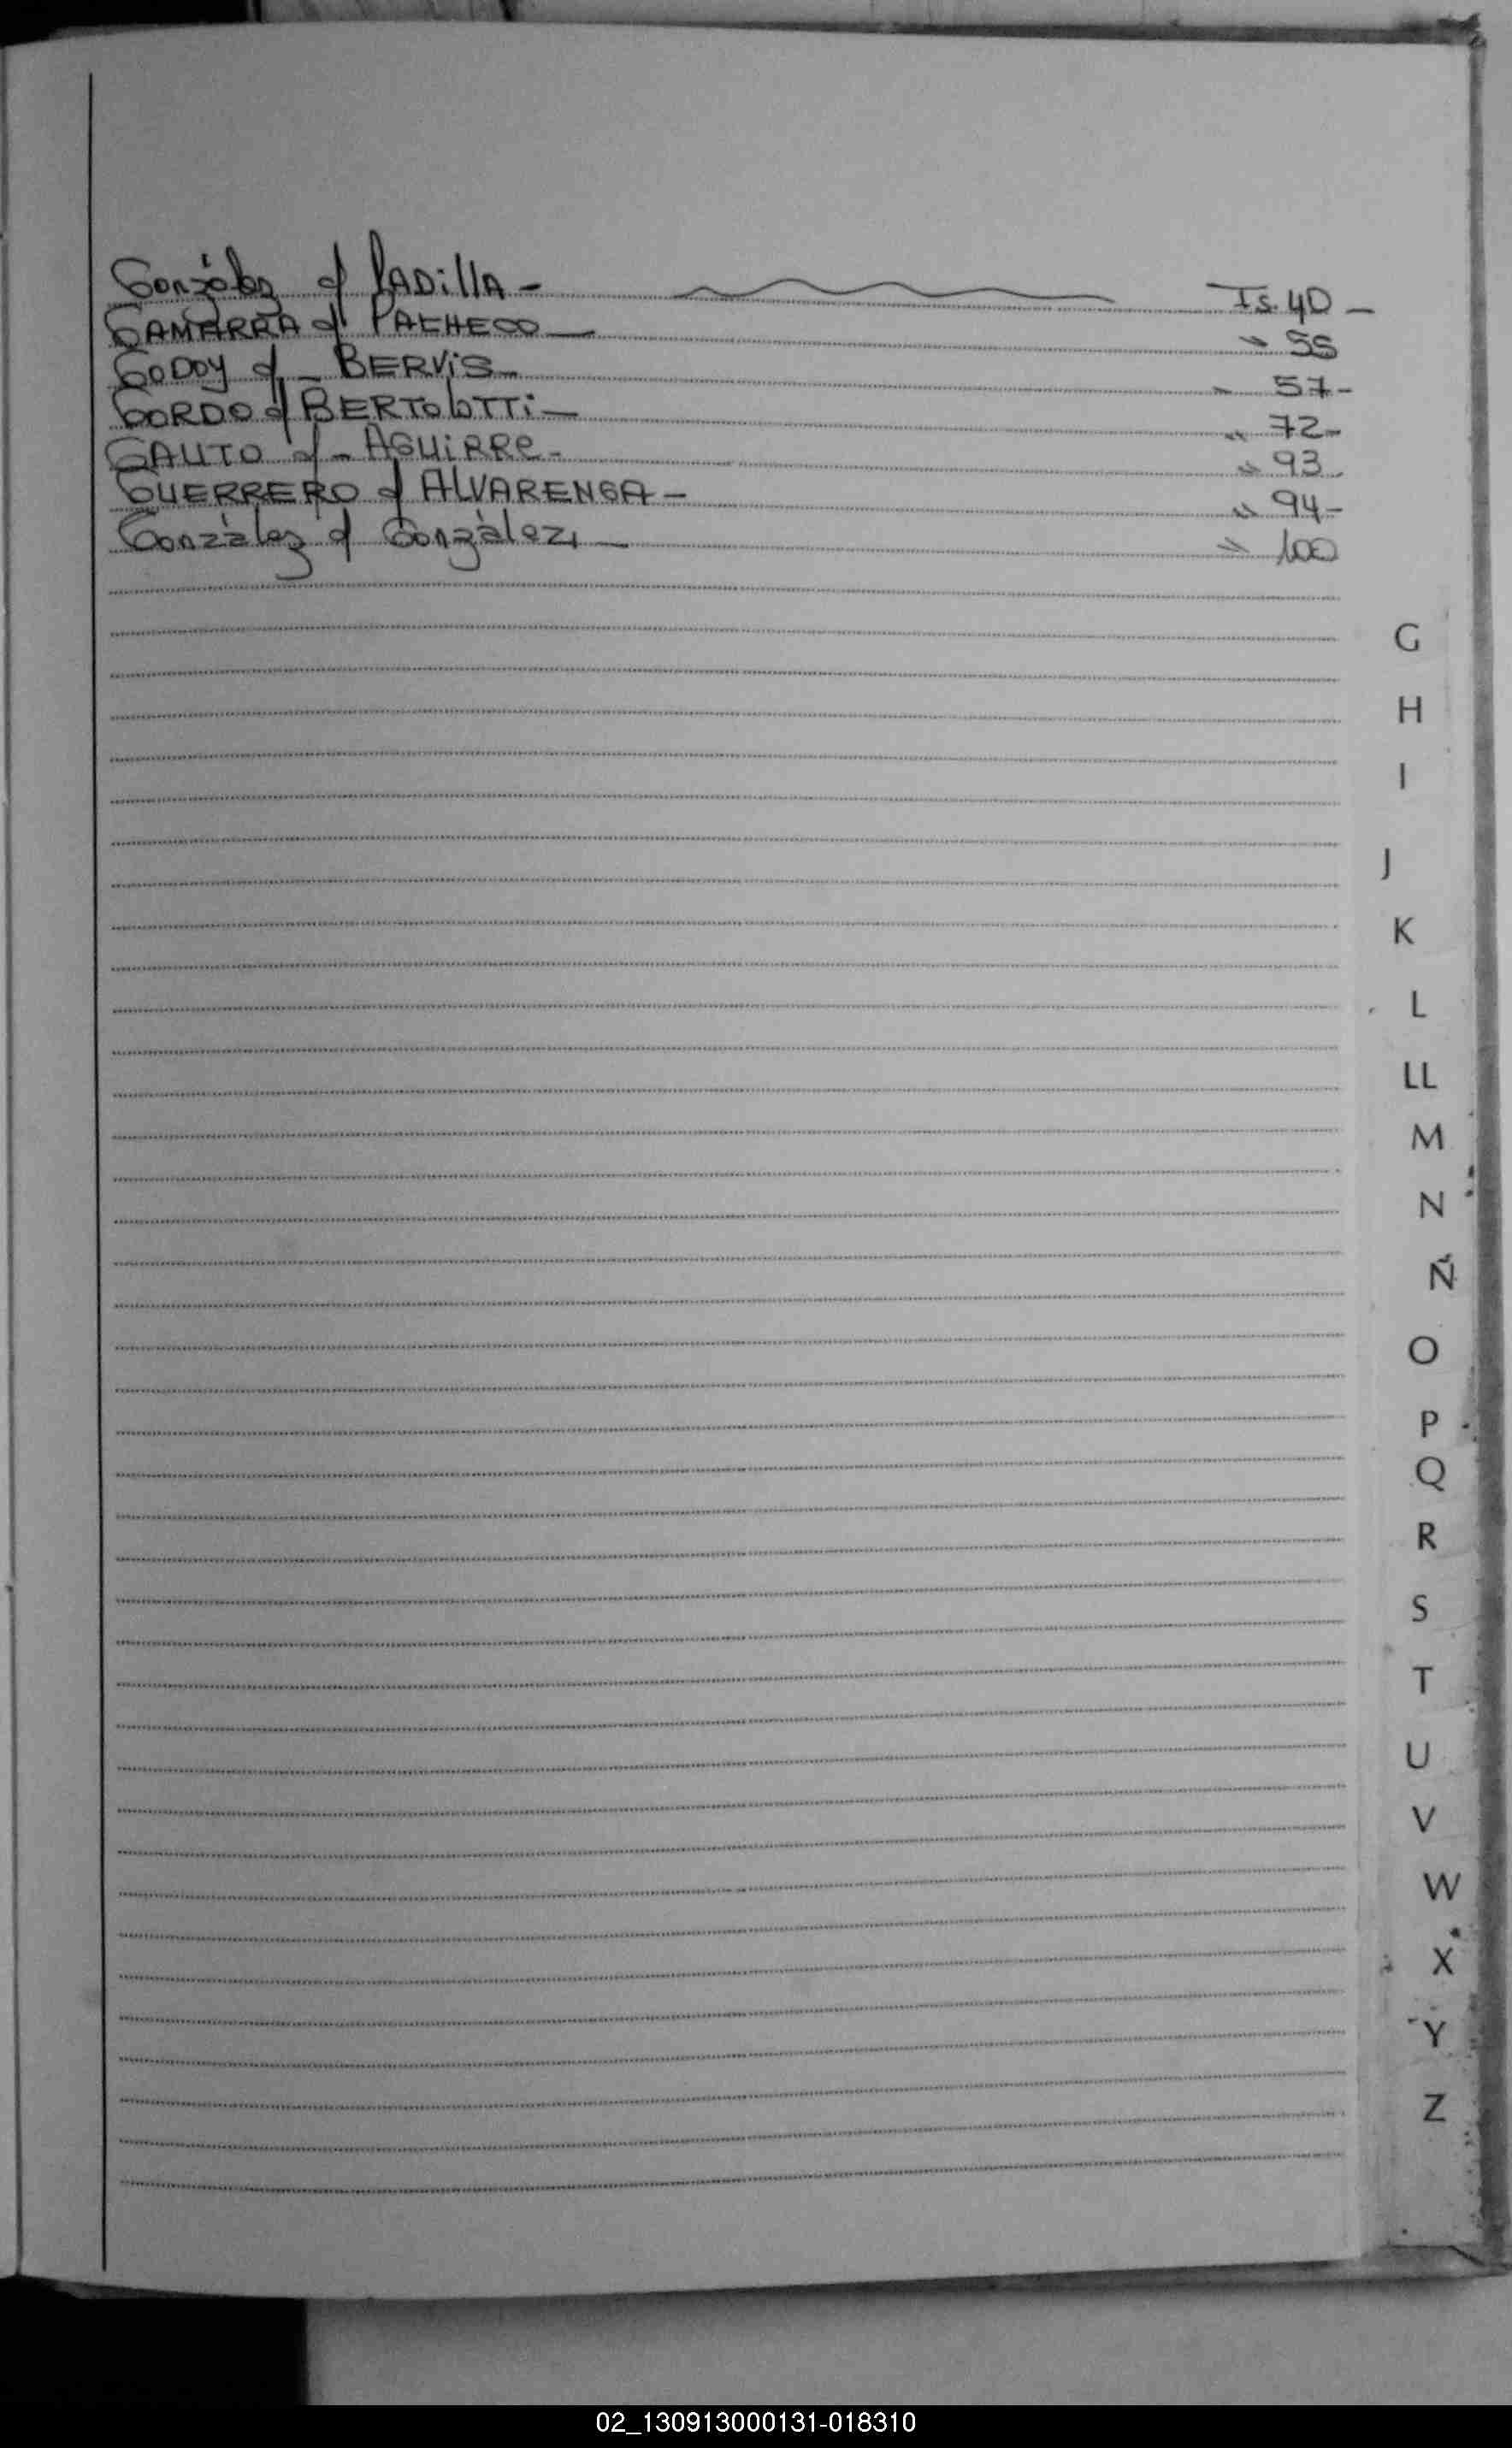 González c/ PADillA - Fs. 40 -
GAMARRA c/ PACHECO - " 55
GODOY c/ - BERViS - " 57 -
GORDO c/ BERTolOTTi - " 72 -
GAUTO c/ - AGUiRRe - " 93
GUERRERO c/ ALVARENGA - " 94 -
González c/ González, - " 100
G
H
I
J
K
L
LL
M
N
Ñ
O
P
Q
R
S
T
U
V
W
X
Y
Z
02_130913000131-018310